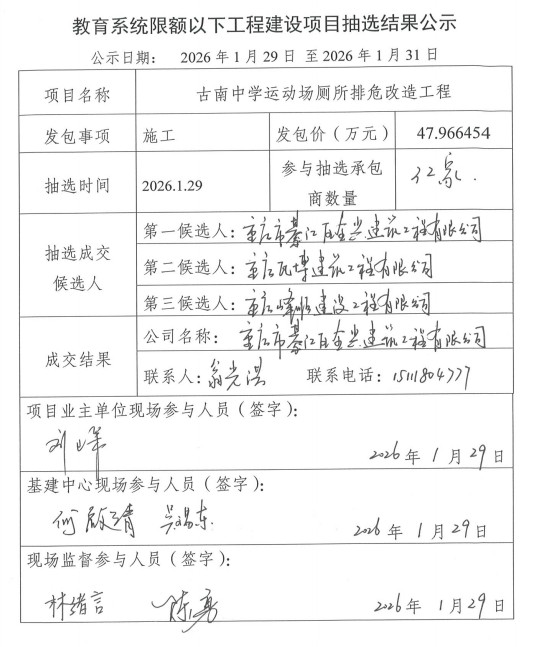 教育系统限额以下工程建设项目抽选结果公示
公示日期： 2026 年 1 月 29 日 至 2026 年 1 月 31 日
项目名称 古南中学运动场厕所排危改造工程
发包事项 施工 发包价（万元） 47.966454
抽选时间 2026.1.29 参与抽选承包商数量 32家.
抽选成交候选人
第一候选人：重庆市綦江区金兴建筑工程有限公司
第二候选人：重庆瓦博建筑工程有限公司
第三候选人：重庆峰顺建设工程有限公司
成交结果
公司名称：重庆市綦江区金兴建筑工程有限公司
联系人：翁光洪 联系电话：15111804777
项目业主单位现场参与人员（签字）：
刘峰
2026 年 1 月 29 日
基建中心现场参与人员（签字）：
何启清 吴锡东
2026 年 1 月 29 日
现场监督参与人员（签字）：
林绪言 陈勇
2026 年 1 月 29 日